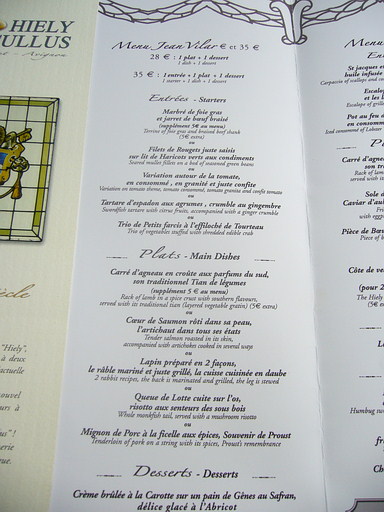 HIELY
ULLUS
Avignon
Siècle
"Hiely",
à deux
actuelle
ouvel
urs à
us" !
nerie
que.
Menu Jean Vilar € et 35 €
28 € : 1 plat + 1 dessert
1 dish + 1 dessert
35 € : 1 entrée + 1 plat + 1 dessert
1 starter + 1 dish + 1 dessert
Entrées - Starters
Marbré de foie gras
et jarret de bœuf braisé
(supplément 5€ au menu)
Terrine of foie gras and braised beef shank
(5€ extra)
ou
Filets de Rougets juste saisis
sur lit de Haricots verts aux condiments
Seared mullet fillets on a bed of seasoned green beans
ou
Variation autour de la tomate,
en consommé , en granité et juste confite
Variation on tomato theme, tomato consommé, tomato granita and confit tomato
ou
Tartare d'espadon aux agrumes , crumble au gingembre
Swordfish tartare with citrus fruits, accompanied with a ginger crumble
ou
Trio de Petits farcis à l'effiloché de Tourteau
Trio of vegetables stuffed with shredded edible crab
Plats - Main Dishes
Carré d'agneau en croûte aux parfums du sud,
son traditionnel Tian de légumes
(supplément 5 € au menu)
Rack of lamb in a spice crust with southern flavours,
served with its traditional tian (layered vegetable gratin) (5€ extra)
ou
Cœur de Saumon rôti dans sa peau,
l'artichaut dans tous ses états
Tender salmon roasted in its skin,
accompanied with artichokes cooked in several ways
ou
Lapin préparé en 2 façons,
le râble mariné et juste grillé, la cuisse cuisinée en daube
2 rabbit recipes, the back is marinated and grilled, the leg is stewed
ou
Queue de Lotte cuite sur l'os,
risotto aux senteurs des sous bois
Whole monkfish tail, served with a mushroom risotto
ou
Mignon de Porc à la ficelle aux épices, Souvenir de Proust
Tenderloin of pork on a string with its spices, Proust's remembrance
Desserts - Desserts
Crème brûlée à la Carotte sur un pain de Gênes au Safran,
délice glacé à l'Abricot
Menu
E
St jacques e
huile infusée
Carpaccio of scallops and
Escalop
et les
Escalope of grille
Pot au feu d
en consomm
Iced consommé of Lobster
P
Carré d'agne
son
Rack of lamb
served with its
Sole d
Caviar d'aub
with eggp
Pièce de Bœu
Côte de ve
(pour 2
The Hie
(5€
Humbug tw
fr
Ch